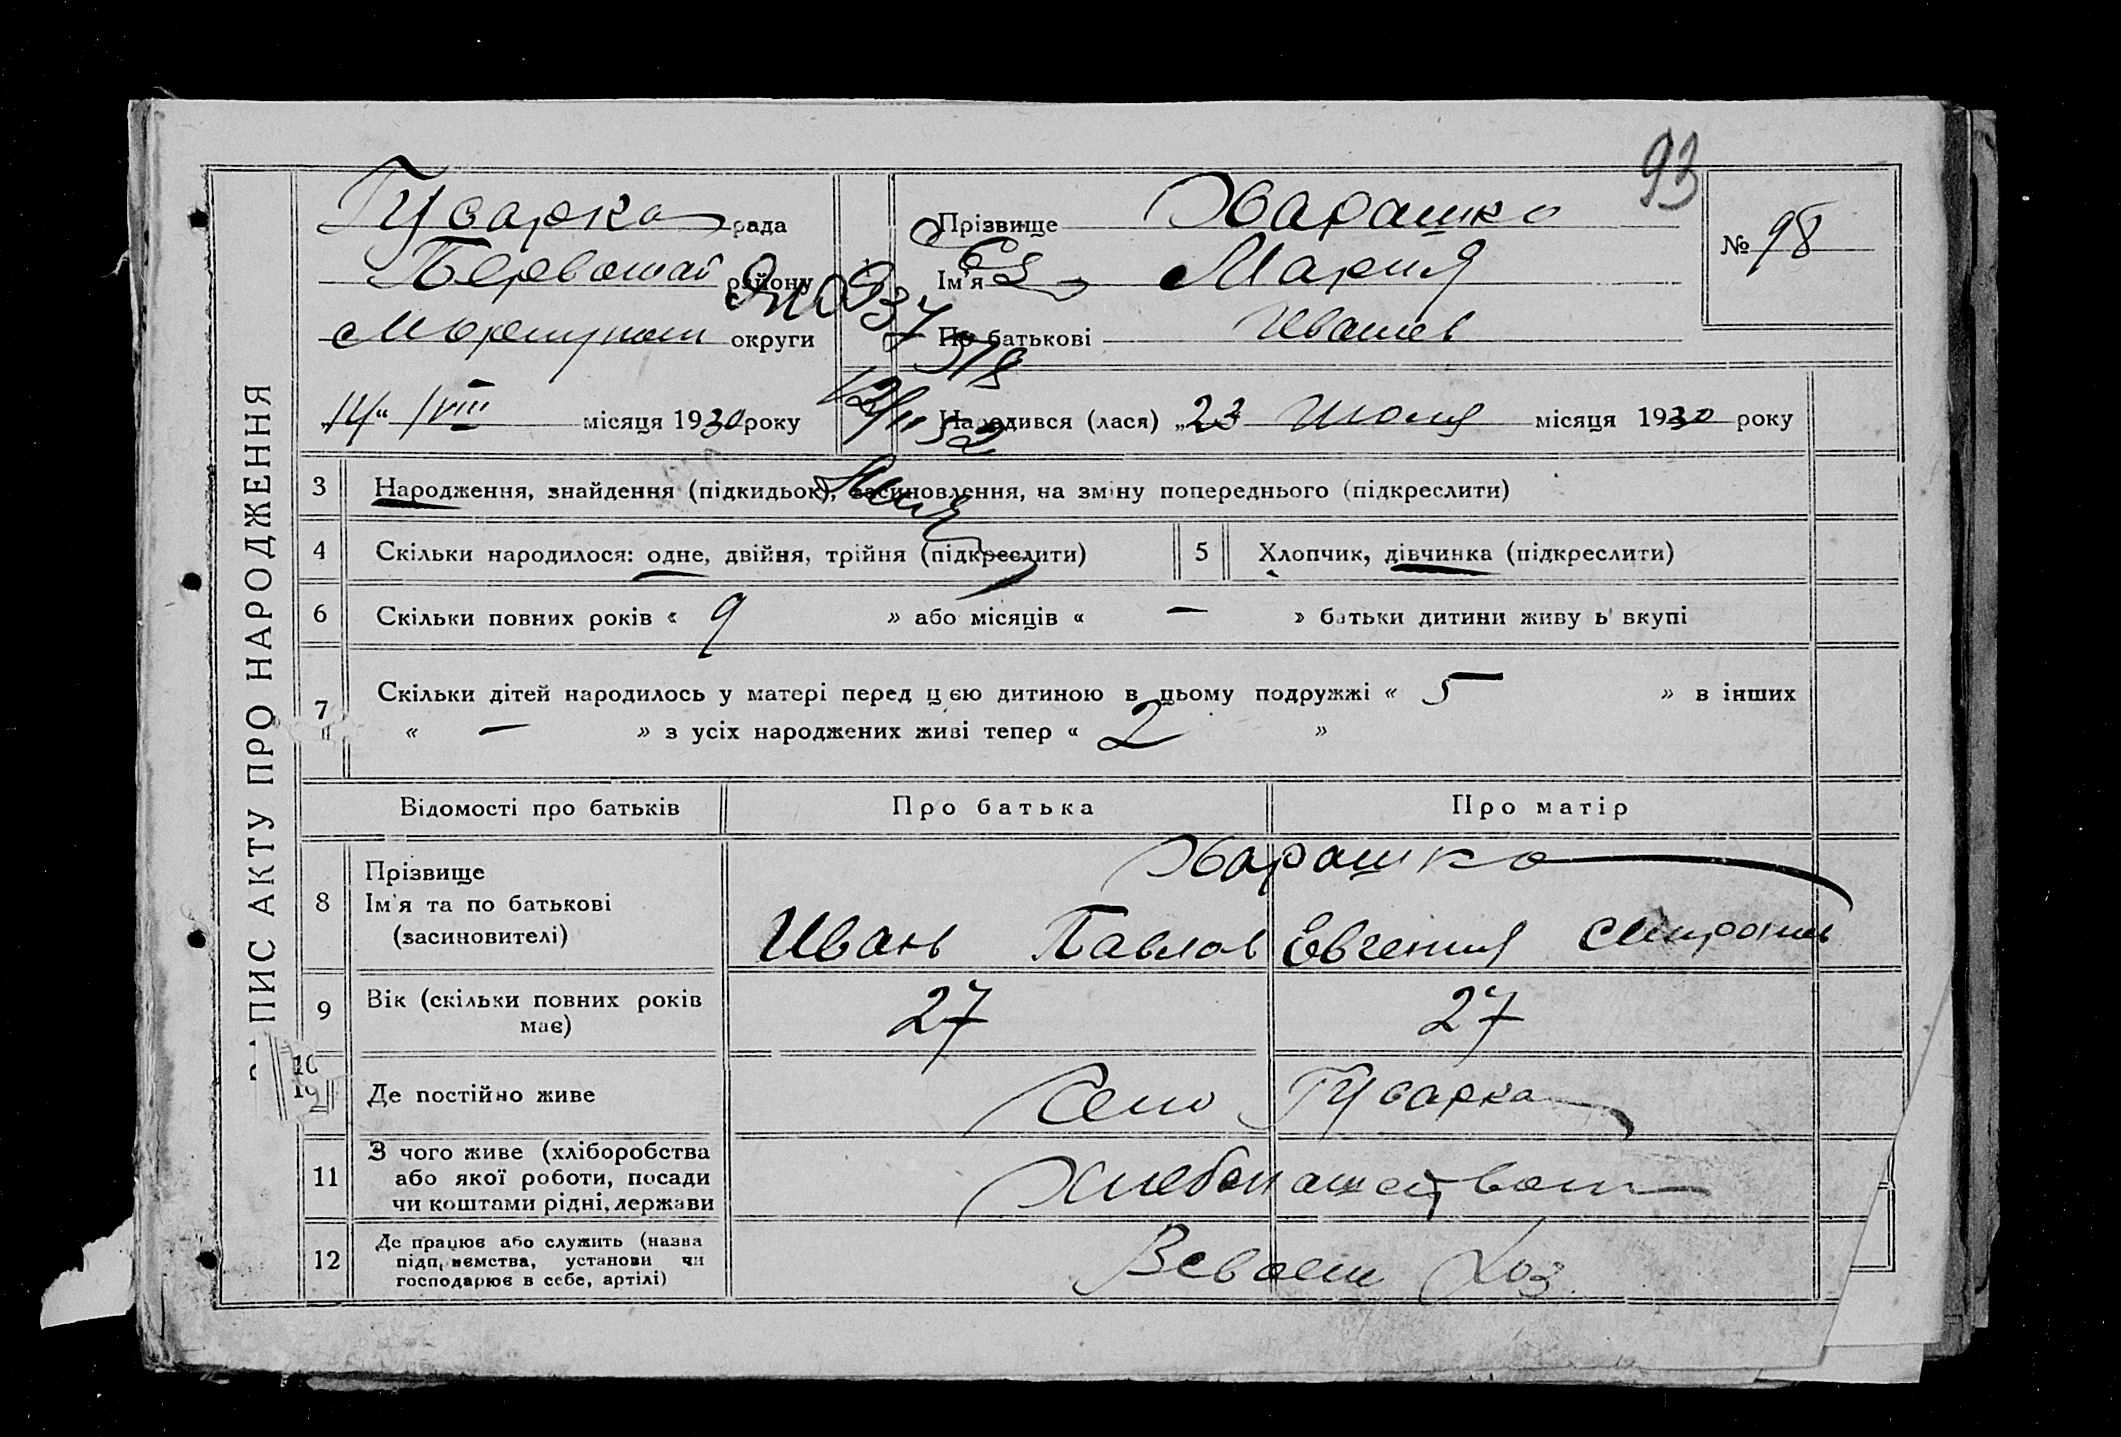 93
Гусарка рада
Первомай району
Мариупол округи
Прізвище Харашко
Ім'я Мария
По батькові Иванов
№ 98
„14“ /VIII місяця 1930 року
12/II 52
Народився (лася) „23 Июля місяця 1930 року
ЗАПИС АКТУ ПРО НАРОДЖЕННЯ
3 Народження, знайдення (підкидьок), засиновлення, на зміну попереднього (підкреслити)
4 Скільки народилося: одне, двійня, трійня (підкреслити)
5 Хлопчик, дівчинка (підкреслити)
6 Скільки повних років « 9 » або місяців « — » батьки дитини живуть вкупі
7 Скільки дітей народилось у матері перед цією дитиною в цьому подружжі « 5 » в інших
« — » з усіх народжених живі тепер « 2 »
Відомості про батьків Про батька Про матір
8 Прізвище
Ім'я та по батькові
(засиновителі)
Харашко
Иван Павлов Евгения Митрофан
9 Вік (скільки повних років
має)
27 27
10 Де постійно живе Село Гусарка
11 З чого живе (хліборобства
або якої роботи, посади
чи коштами рідні, держави
Хлебопашеством
12 Де працює або служить (назва
підприємства, установи чи
господарює в себе, артілі)
В своем хоз.